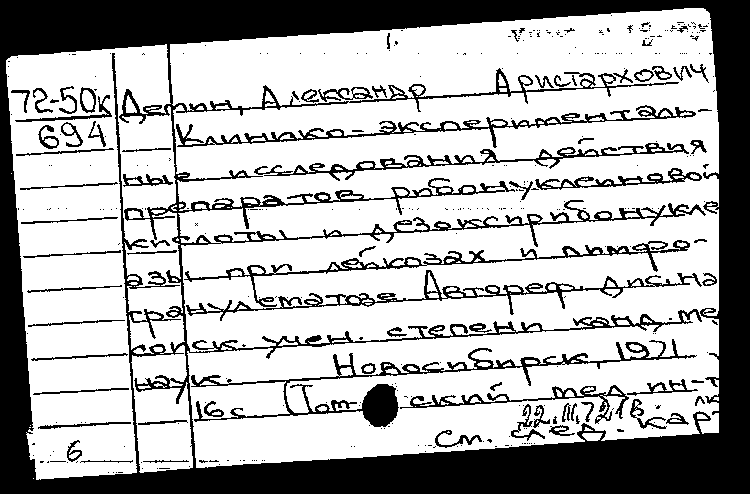 1.
72-50к Демин, Александр Аристархович
694 Клинико-эксперименталь-
ные исследования действия
препаратов рибонуклеиновой
кислоты и дезоксирибонукле
азы при лейкозах и лимфо-
гранулематозе. Автореф. дис. на
соиск. учен. степени канд. ме
наук. Новосибирск, 1971
16 с. (Томский мед. ин-т
22.III.72 1в.
6 см. след. кар